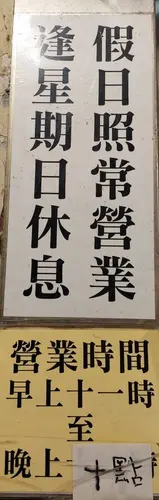 假日照常營業
逢星期日休息
營業時間
早上十一時
至
晚上十點